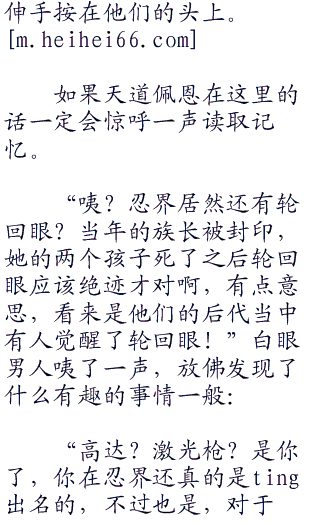 伸手按在他们的头上。
[m.heihei66.com]
如果天道佩恩在这里的
话一定会惊呼一声读取记
忆。
“咦？忍界居然还有轮
回眼？当年的族长被封印，
她的两个孩子死了之后轮回
眼应该绝迹才对啊，有点意
思，看来是他们的后代当中
有人觉醒了轮回眼！”白眼
男人咦了一声，放佛发现了
什么有趣的事情一般：
“高达？激光枪？是你
了，你在忍界还真的是ting
出名的，不过也是，对于